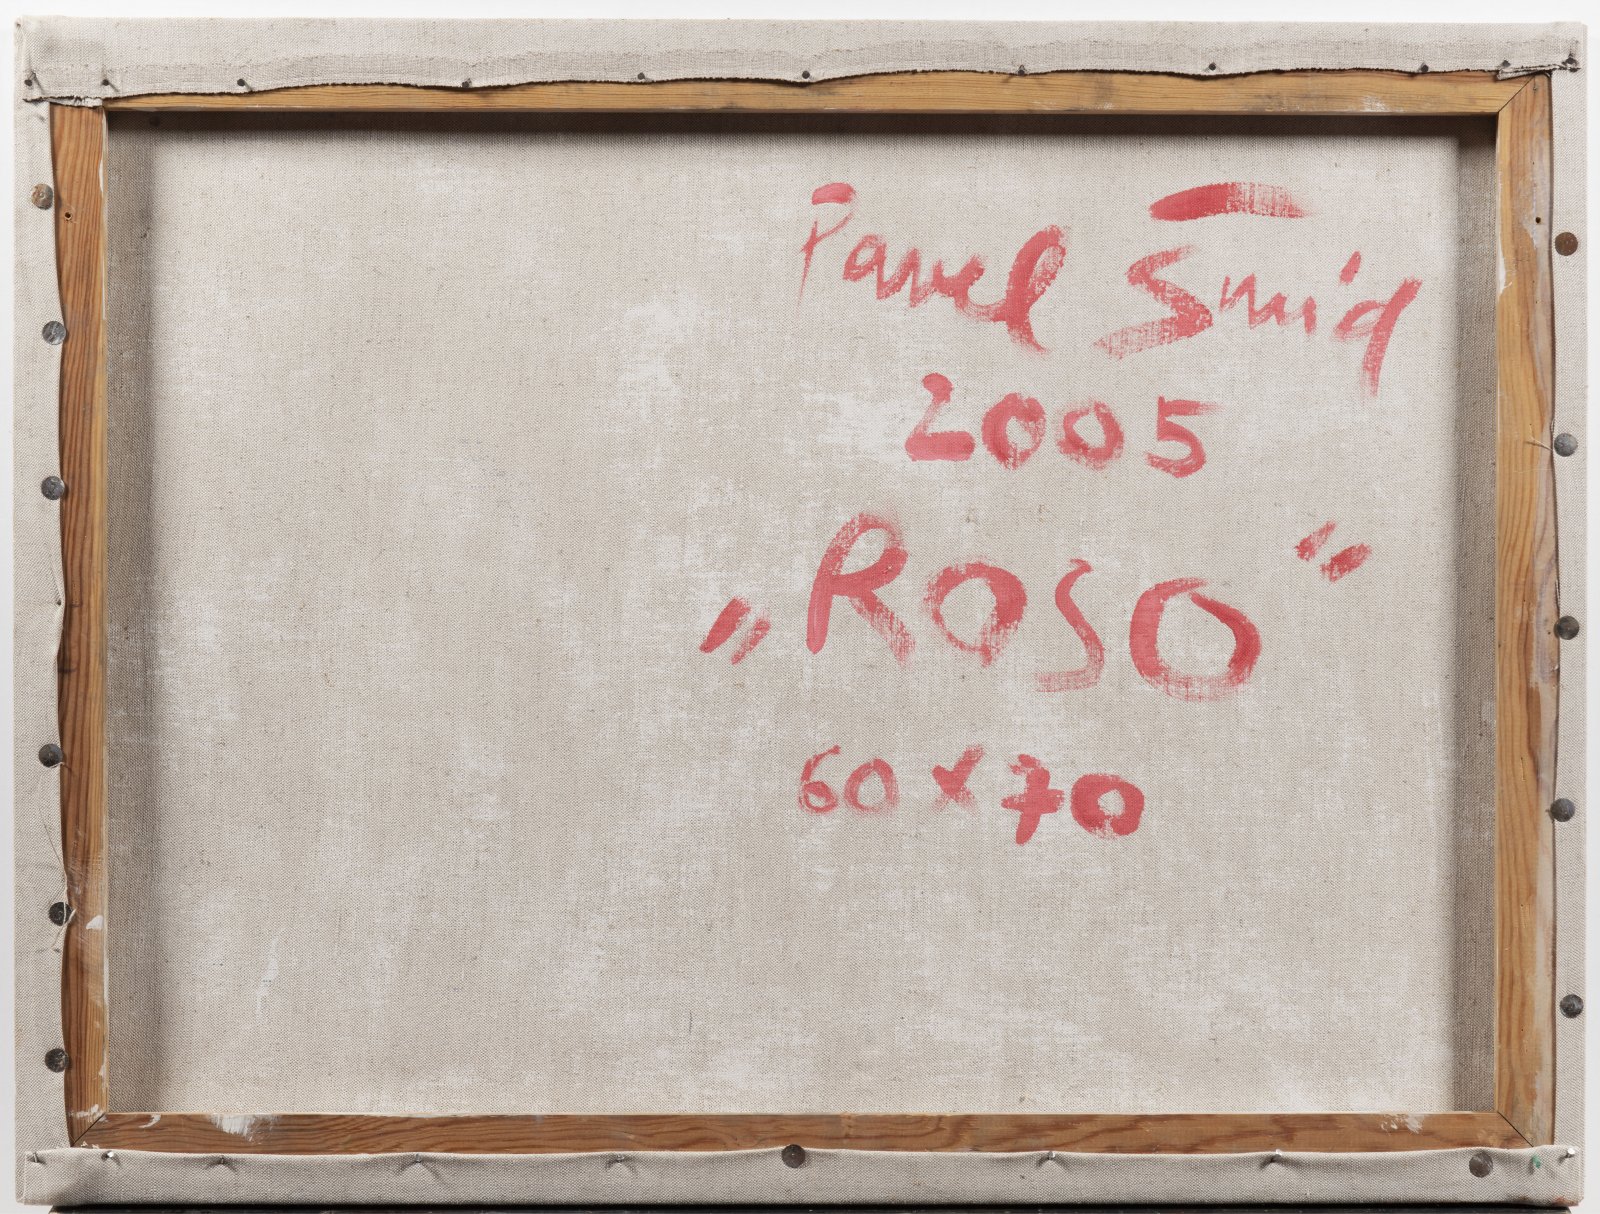 Pavel Šmíd
2005
„Roso"
60 x 70